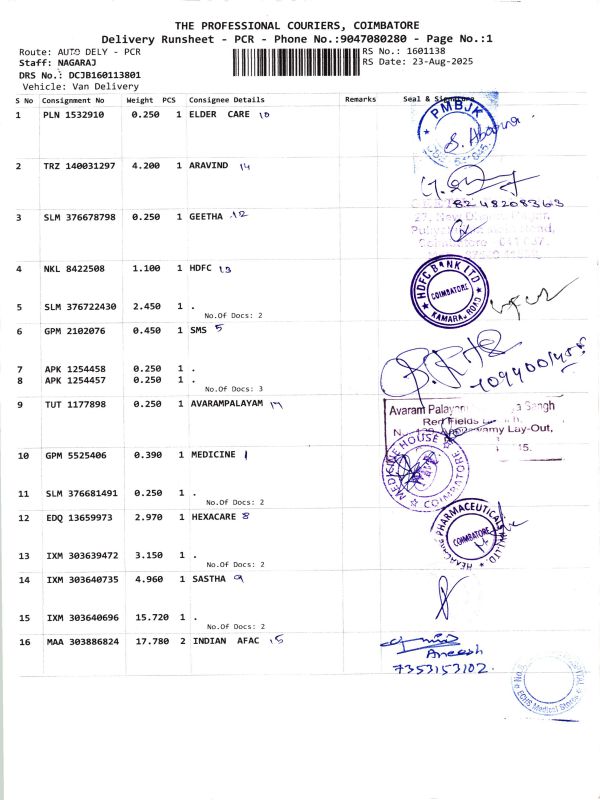 THE PROFESSIONAL COURIERS, COIMBATORE
Delivery Runsheet - PCR - Phone No.:9047080280 - Page No.:1
Route: AUTO DELY - PCR RS No.: 1601138
Staff: NAGARAJ RS Date: 23-Aug-2025
DRS No.: DCJB160113801
Vehicle: Van Delivery
S No Consignment No Weight PCS Consignee Details Remarks Seal & Signature
1 PLN 1532910 0.250 1 ELDER CARE 10
PMBJK
2 TRZ 140031297 4.200 1 ARAVIND 14
8248208363
3 SLM 376678798 0.250 1 GEETHA 12
4 NKL 8422508 1.100 1 HDFC 13
HDFC BANK LTD
COIMBATORE
KAMARAJ ROAD
5 SLM 376722430 2.450 1 .
No.Of Docs: 2
6 GPM 2102076 0.450 1 SMS 5
7 APK 1254458 0.250 1 .
8 APK 1254457 0.250 1 .
No.Of Docs: 3
9 TUT 1177898 0.250 1 AVARAMPALAYAM
Avaram Palayam Sangh
Red Fields
Lay-Out,
10 GPM 5525406 0.390 1 MEDICINE 1
MEDICINE HOUSE
COIMBATORE
11 SLM 376681491 0.250 1 .
No.Of Docs: 2
12 EDQ 13659973 2.970 1 HEXACARE 8
PHARMACEUTICALS
COIMBATORE
13 IXM 303639472 3.150 1 .
No.Of Docs: 2
14 IXM 303640735 4.960 1 SASTHA 9
15 IXM 303640696 15.720 1 .
No.Of Docs: 2
16 MAA 303886824 17.780 2 INDIAN AFAC 15
Aneesh
7353153102.
ECHS Medical Stores